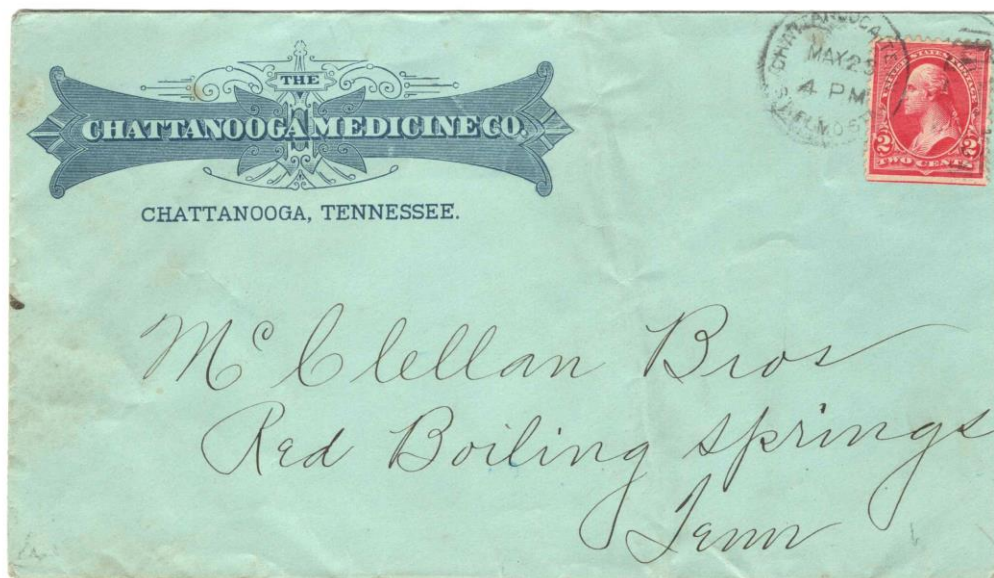 THE
CHATTANOOGA MEDICINE CO.
CHATTANOOGA, TENNESSEE.
CHATTANOOGA, TE
MAY 25
4 PM
UNITED STATES POSTAGE
2 2
TWO CENTS
Mc Clellan Bros
Red Boiling Springs
Tenn